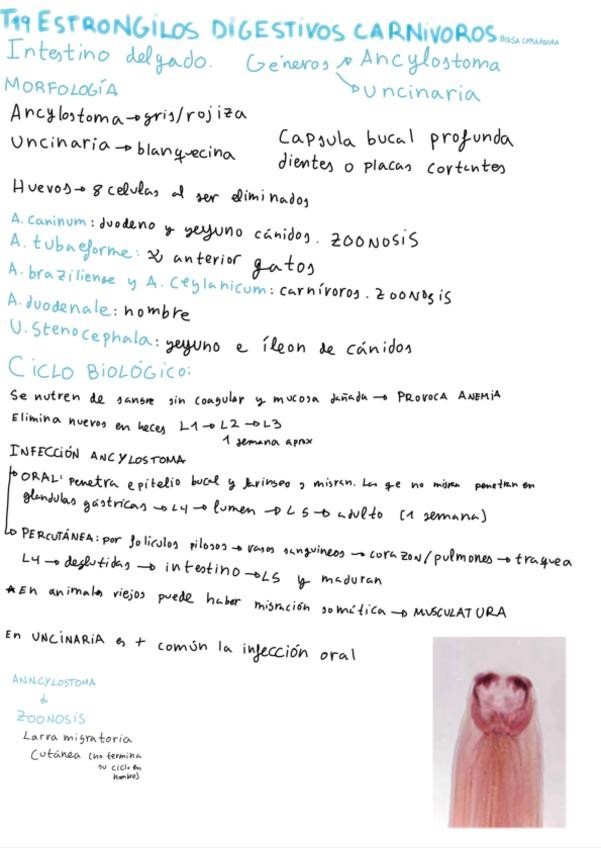 T19 ESTRONGILOS DIGESTIVOS CARNIVOROS BOLSA COPULADORA
Intestino delgado. Géneros → Ancylostoma
→ Uncinaria
MORFOLOGÍA
Ancylostoma → gris/rojiza
Uncinaria → blanquecina
Capsula bucal profunda
dientes o placas cortantes
Huevos → 8 celulas al ser eliminados
A. caninum: duodeno y yeyuno cánidos. ZOONOSIS
A. tubaeforme: anterior gatos
A. braziliense y A. Ceylanicum: carnívoros. ZOONOSIS
A. duodenale: hombre
U. Stenocephala: yeyuno e íleon de cánidos
CICLO BIOLÓGICO:
Se nutren de sangre sin coagular y mucosa dañada → PROVOCA ANEMIA
Elimina huevos en heces L1 → L2 → L3
1 semana aprox
INFECCIÓN ANCYLOSTOMA
→ ORAL: penetra epitelio bucal y faringeo y migran. Las que no migran penetran en
glandulas gástricas → L4 → lumen → L5 → adulto (1 semana)
→ PERCUTÁNEA: por foliculos pilosos → vasos sanguineos → corazon/pulmones → traquea
L4 → deglutidas → intestino → L5 y maduran
* En animales viejos puede haber migración somática → MUSCULATURA
En UNCINARIA es + común la infección oral
ANNCYLOSTOMA
↓
ZOONOSIS
Larva migratoria
Cutánea (no termina
su ciclo en
hombre)